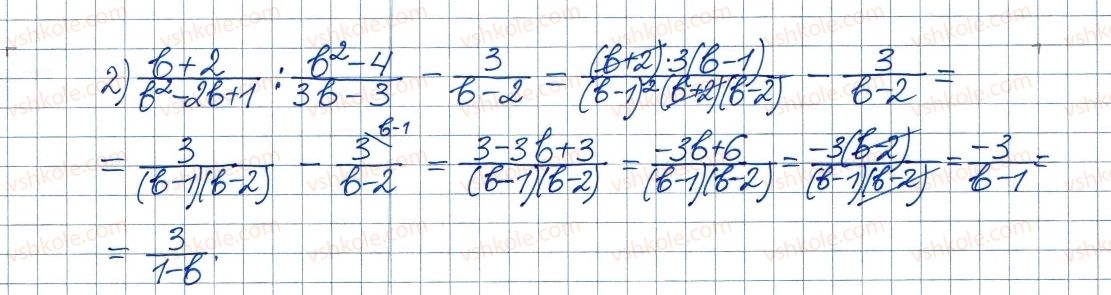 2) (b+2)/(b²-2b+1) : (b²-4)/(3b-3) - 3/(b-2) = ((b+2)·3(b-1))/((b-1)²(b+2)(b-2)) - 3/(b-2) =
= 3/((b-1)(b-2)) - 3^(b-1)/(b-2) = (3-3b+3)/((b-1)(b-2)) = (-3b+6)/((b-1)(b-2)) = (-3(b-2))/((b-1)(b-2)) = (-3)/(b-1) =
= 3/(1-b).